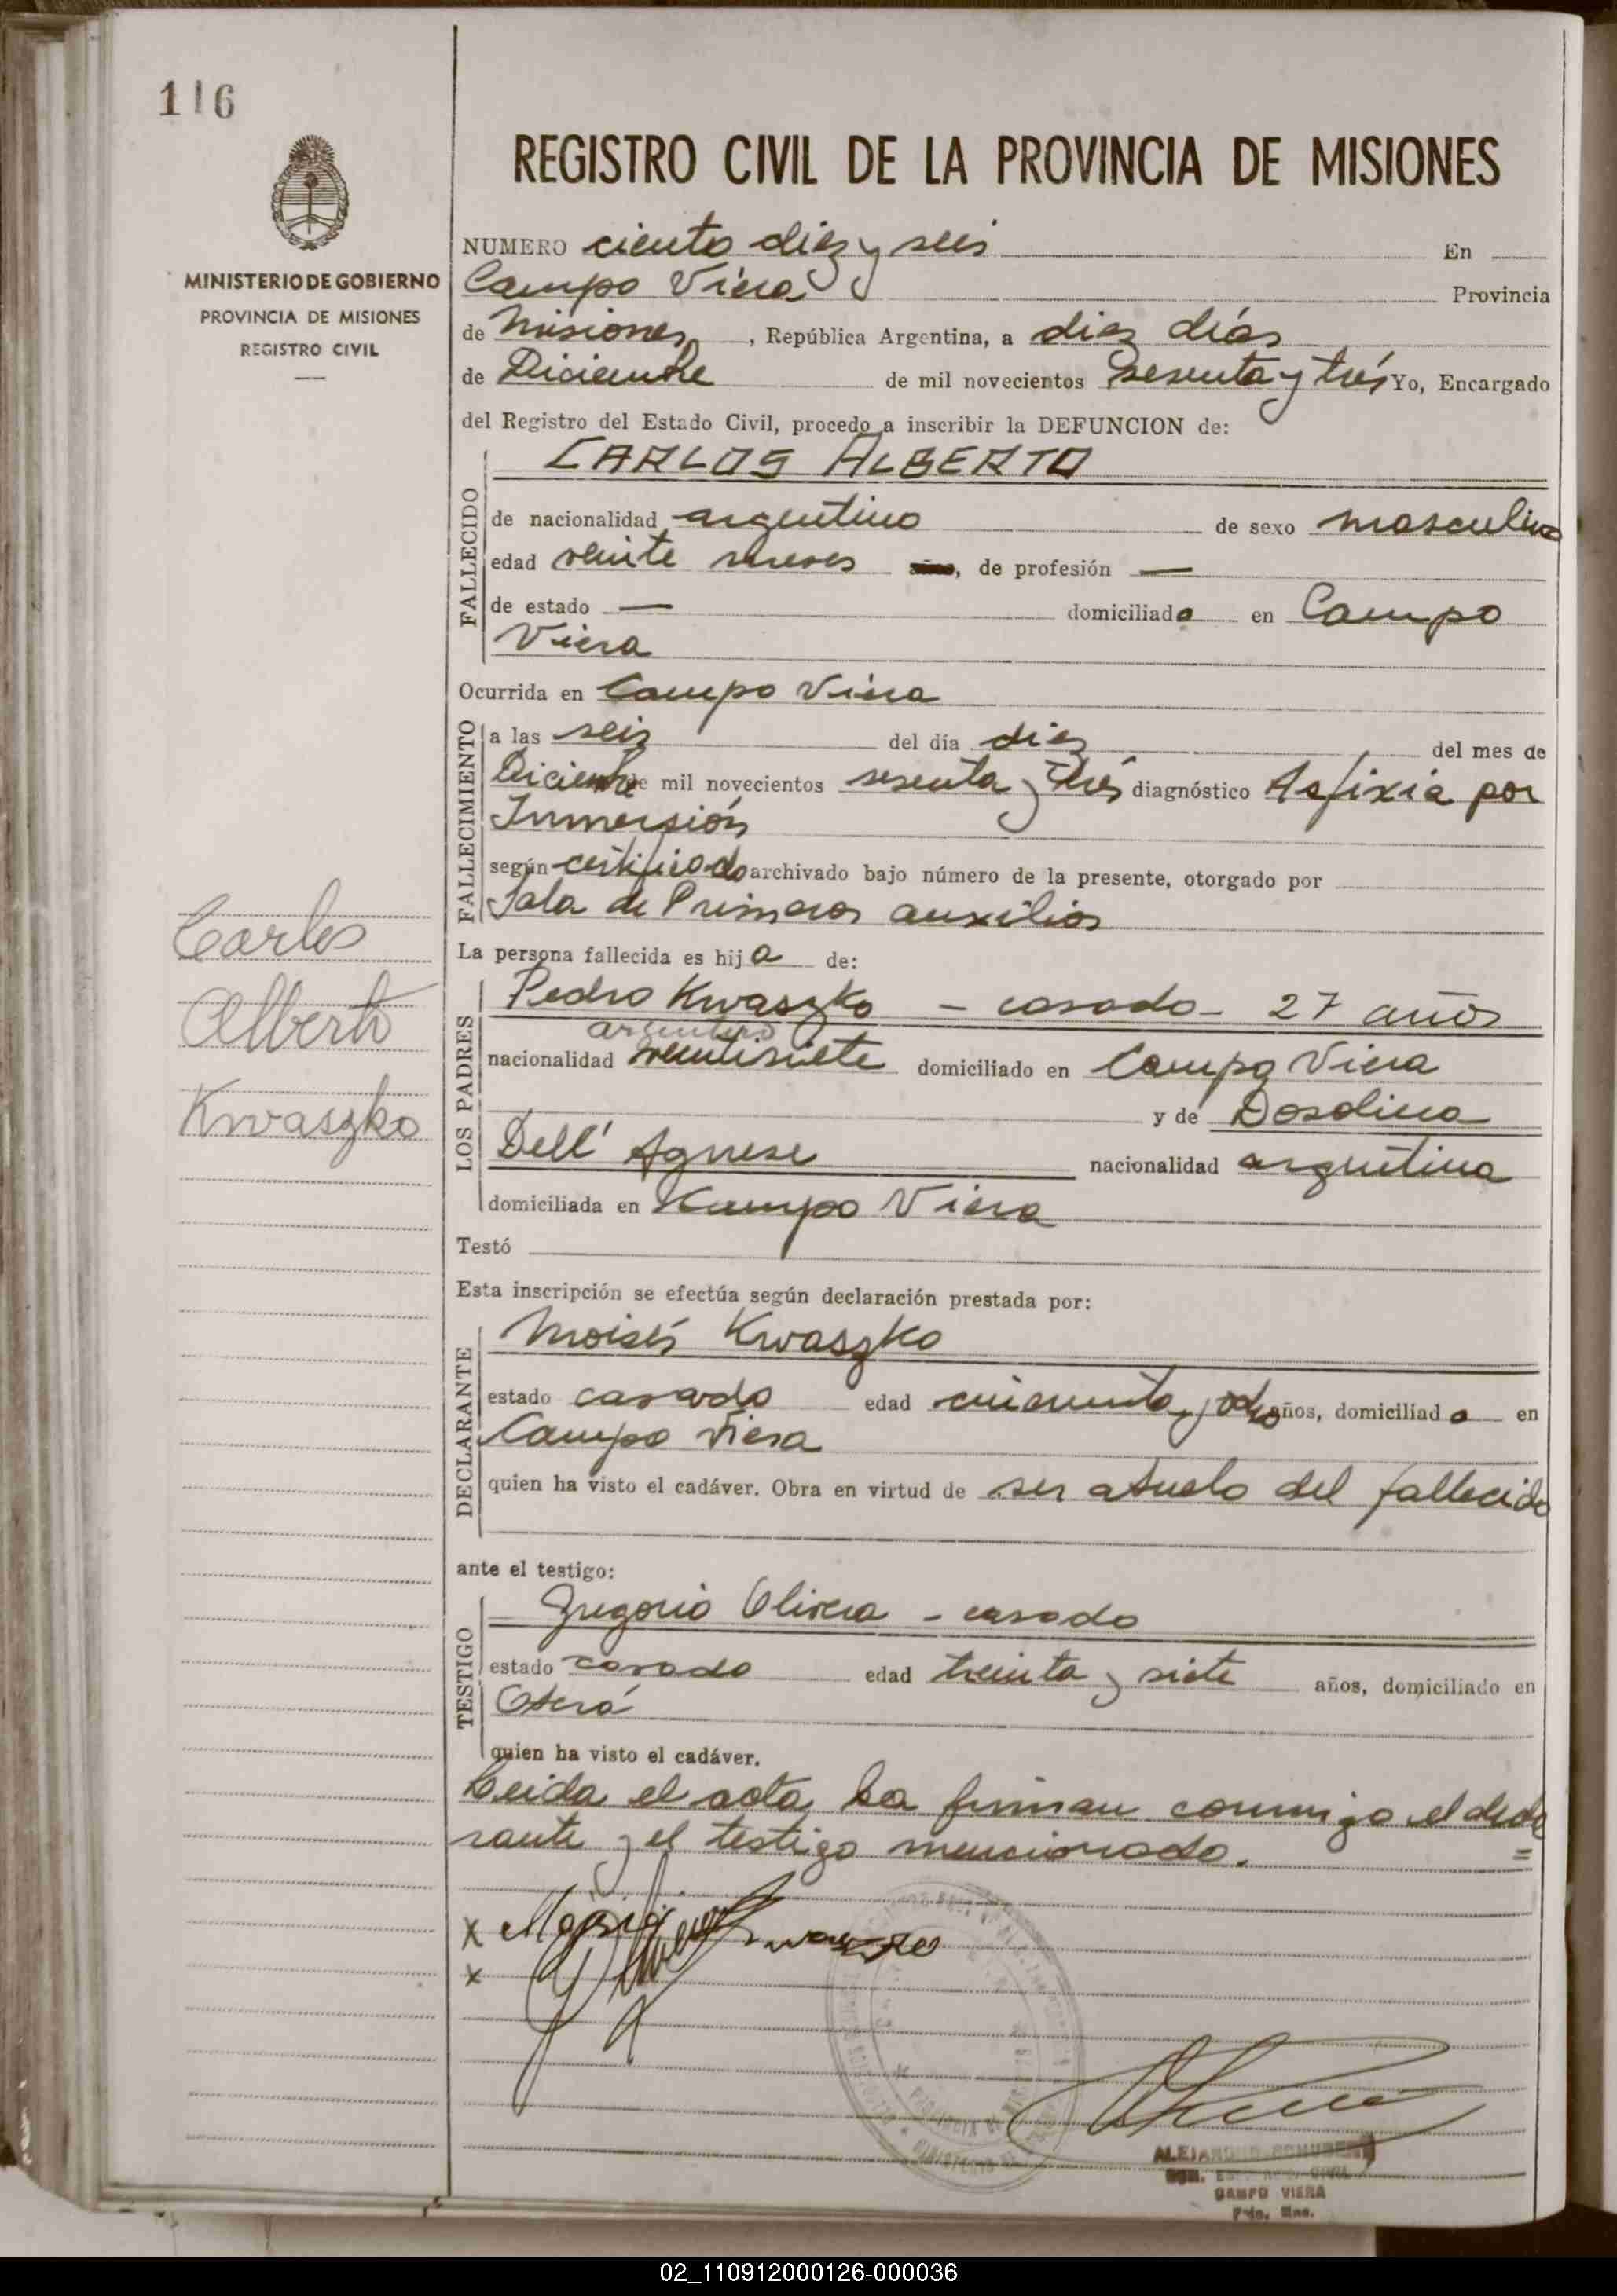 116
MINISTERIO DE GOBIERNO
PROVINCIA DE MISIONES
REGISTRO CIVIL
REGISTRO CIVIL DE LA PROVINCIA DE MISIONES
NUMERO ciento diez y seis En
Campo Viera Provincia
de Misiones, República Argentina, a diez días
de Diciembre de mil novecientos sesenta y trés Yo, Encargado
del Registro del Estado Civil, procedo a inscribir la DEFUNCION de:
CARLOS ALBERTO
FALLECIDO
de nacionalidad argentino de sexo masculino
edad veinte meses años, de profesión —
de estado — domiciliado en Campo
Viera
Ocurrida en Campo Viera
FALLECIMIENTO
a las seis del día diez del mes de
Diciembre de mil novecientos sesenta y trés diagnóstico Asfixia por
Inmersión
según certificado archivado bajo número de la presente, otorgado por
Sala de Primeros auxilios
La persona fallecida es hijo de:
LOS PADRES
Pedro Kwaszko – casado – 27 años
argentino
nacionalidad veintisiete domiciliado en Campo Viera
y de Dosolina
Dell' Agnese nacionalidad argentina
domiciliada en Campo Viera
Testó
Esta inscripción se efectúa según declaración prestada por:
DECLARANTE
Moisés Kwaszko
estado casado edad cincuenta y ocho años, domiciliado en
Campo Viera
quien ha visto el cadáver. Obra en virtud de ser abuelo del fallecido
ante el testigo:
TESTIGO
Gregorio Olivera – casado
estado casado edad treinta y siete años, domiciliado en
Oberá
quien ha visto el cadáver.
Leida el acta la firman conmigo el decla
rante y el testigo mencionado. =
Carlos
Alberto
Kwaszko
x Moisés Kwaszko
x
CAMPO VIERA
02_110912000126-000036